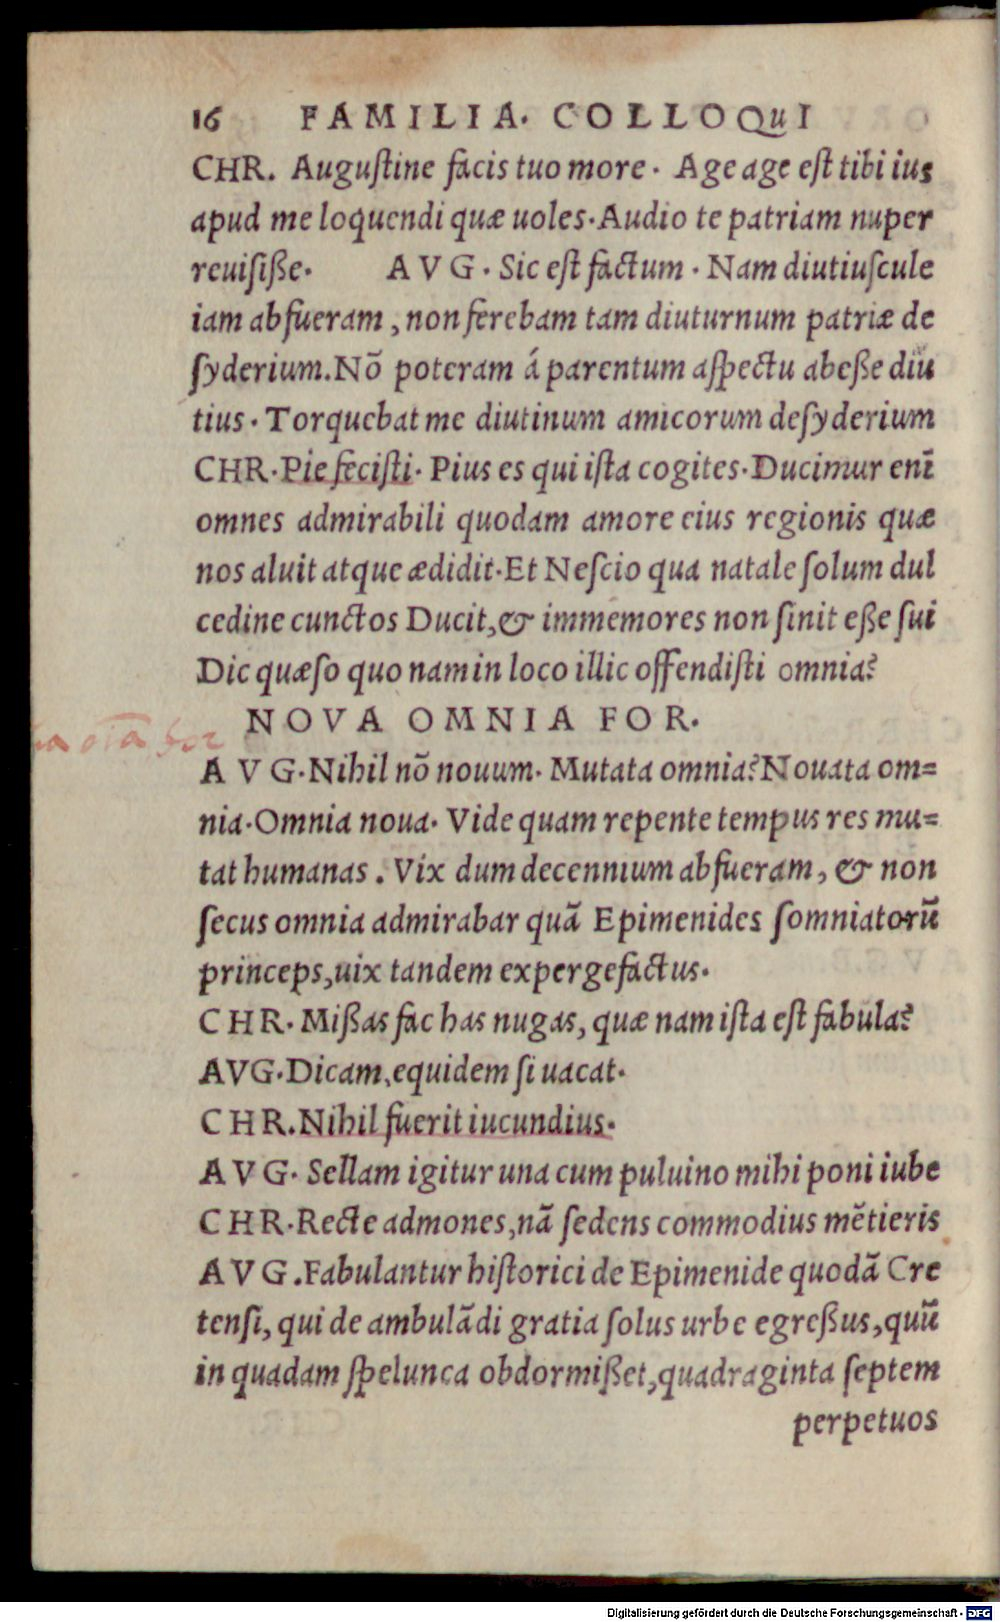 16 FAMILIA. COLLOQuI
CHR. Auguſtine facis tuo more. Age age eſt tibi ius
apud me loquendi quæ uoles. Audio te patriam nuper
reuiſiße. AVG. Sic eſt factum. Nam diutiuſcule
iam abfueram, non ferebam tam diuturnum patriæ de
ſyderium. Nõ poteram á parentum aſpectu abeße diu
tius. Torquebat me diutinum amicorum deſyderium
CHR. Pie feciſti. Pius es qui iſta cogites. Ducimur enī
omnes admirabili quodam amore eius regionis quæ
nos aluit atque ædidit. Et Neſcio qua natale ſolum dul
cedine cunctos Ducit, & immemores non ſinit eße ſui
Dic quæſo quo nam in loco illic offendiſti omnia?
NOVA OMNIA FOR.
oīa for
AVG. Nihil nõ nouum. Mutata omnia? Nouata om=
nia. Omnia noua. Vide quam repente tempus res mu=
tat humanas. Vix dum decennium abfueram, & non
ſecus omnia admirabar quã Epimenides ſomniatorũ
princeps, uix tandem expergefactus.
CHR. Mißas fac has nugas, quæ nam iſta eſt fabula?
AVG. Dicam, equidem ſi uacat.
CHR. Nihil fuerit iucundius.
AVG. Sellam igitur una cum puluino mihi poni iube
CHR. Recte admones, nã ſedens commodius mẽtieris
AVG. Fabulantur hiſtorici de Epimenide quodã Cre
tenſi, qui de ambulãdi gratia ſolus urbe egreßus, quũ
in quadam ſpelunca obdormißet, quadraginta ſeptem
perpetuos
Digitalisierung gefördert durch die Deutsche Forschungsgemeinschaft - DFG